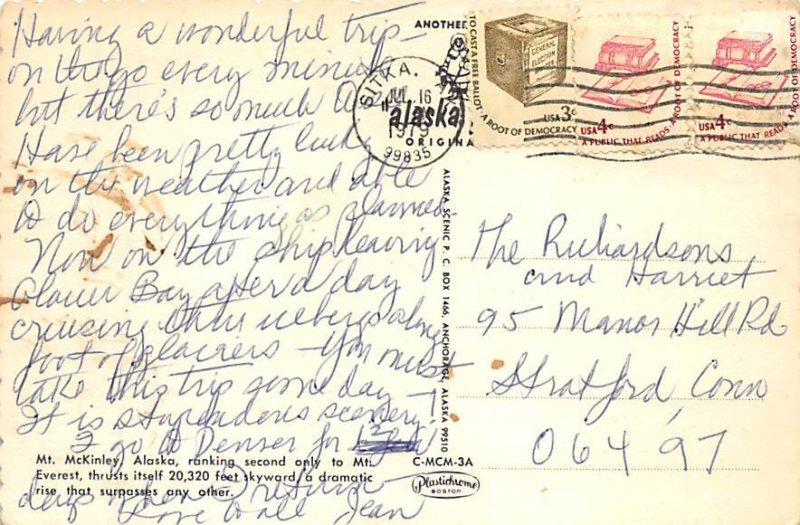 Having a wonderful trip -
on the go every minute
but there's so much to
Have been pretty lucky
on the weather and able
to do everything as planned
Now on the ship leaving
Glacier Bay after a day
cruising thru icebergs along
foot of glaciers - You must
take this trip some day - !
It is stupendous scenery!
I go to Denver for
days
Love to all Jean
Mt. McKinley, Alaska, ranking second only to Mt.
Everest, thrusts itself 20,320 feet skyward, a dramatic
rise that surpasses any other.
C-MCM-3A
Plastichrome
BOSTON
ANOTHER
alaska
ORIGINA
SITKA,
JUL 16
1979
99835
ALASKA SCENIC P. C. BOX 1466, ANCHORAGE, ALASKA 99510
TO CAST A FREE BALLOT · A ROOT OF DEMOCRACY
GENERAL
ELECTION
USA 3c
A PUBLIC THAT READS · A ROOT OF DEMOCRACY
USA 4c
A PUBLIC THAT READS · A ROOT OF DEMOCRACY
USA 4c
The Richardsons
and Harriet
95 Manor Hill Rd
Stratford, Conn
06497